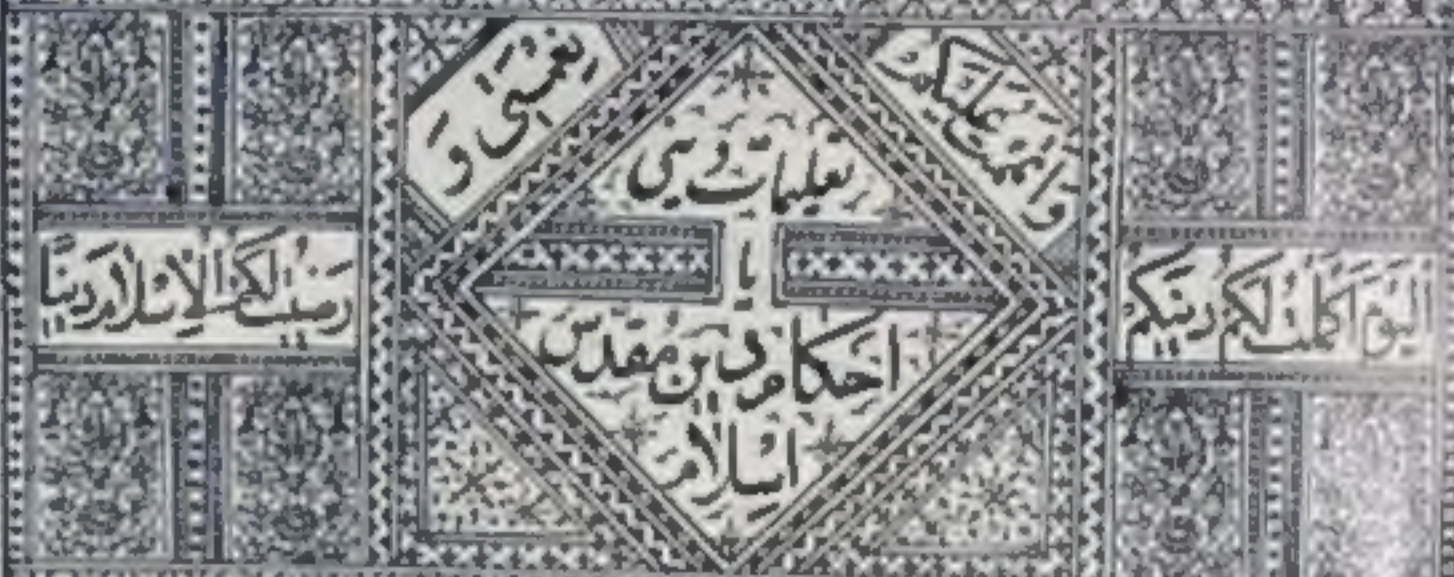 اليوم اكملت لكم دينكم
واتممت عليكم
نعمتی و
رضيت لكم الاسلام دينا
تعليمات دینی
یا
احكام دین مقدس
اسلام